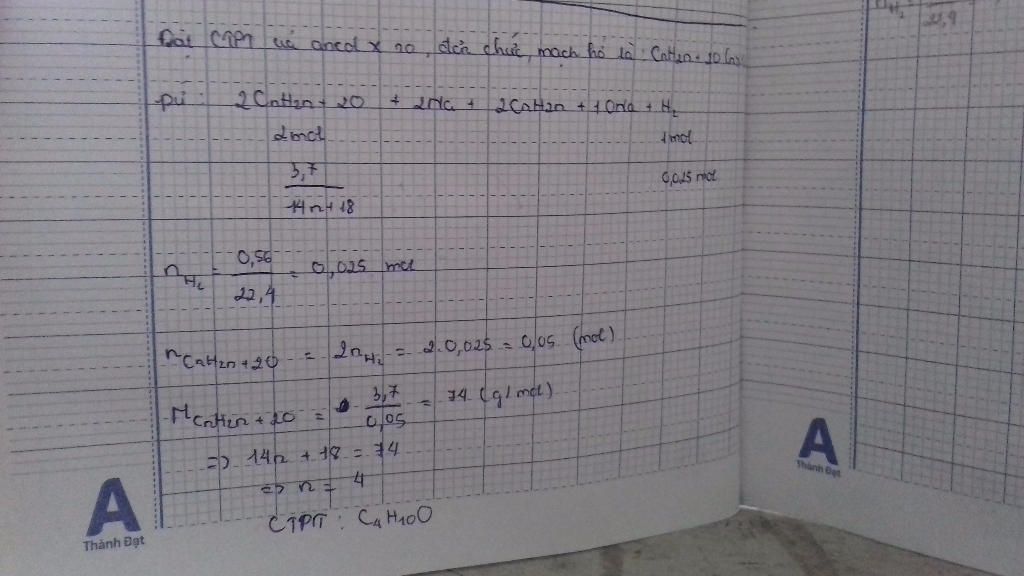 Đặt CTPT của ancol X no, đơn chức, mạch hở là: CnH2n+2O
n H2
22,4
pứ: 2CnH2n+2O + 2Na + 2CnH2n+1ONa + H2
2mol 1mol
3,7 0,025 mol
14n+18
nH2 = 0,56 / 22,4 = 0,025 mol
nCnH2n+2O = 2nH2 = 2.0,025 = 0,05 (mol)
MCnH2n+2O = 3,7 / 0,05 = 74 (g/mol)
=> 14n + 18 = 74
=> n = 4
CTPT: C4H10O
A
Thành Đạt
A
Thành Đạt